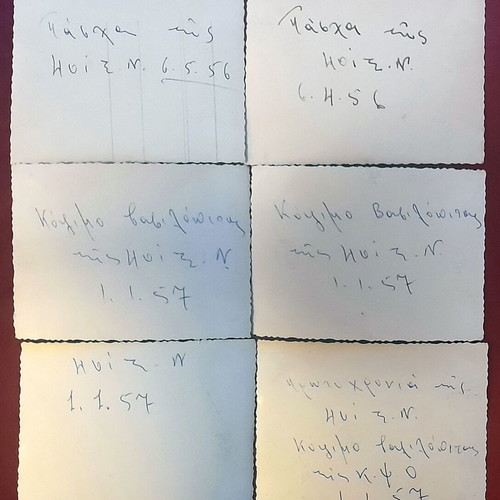 Πάσχα της
ΗΥΪ Σ. Ν. 6.5.56
Πάσχα της
ΗΥΪ Σ. Ν.
6.4.56
Κόψιμο βασιλόπιτας
της ΗΥΪ Σ. Ν.
1.1.57
Κόψιμο Βασιλόπιτας
της ΗΥΪ Σ. Ν.
1.1.57
ΗΥΪ Σ. Ν
1.1.57
Πρωτοχρονιά της
ΗΥΪ Σ. Ν.
Κόψιμο βασιλόπιτας
της Κ.Ψ.Ο
1.1.57